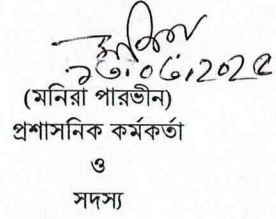 ২৬.০৫.২০২৫
(মনিরা পারভীন)
প্রশাসনিক কর্মকর্তা
ও
সদস্য